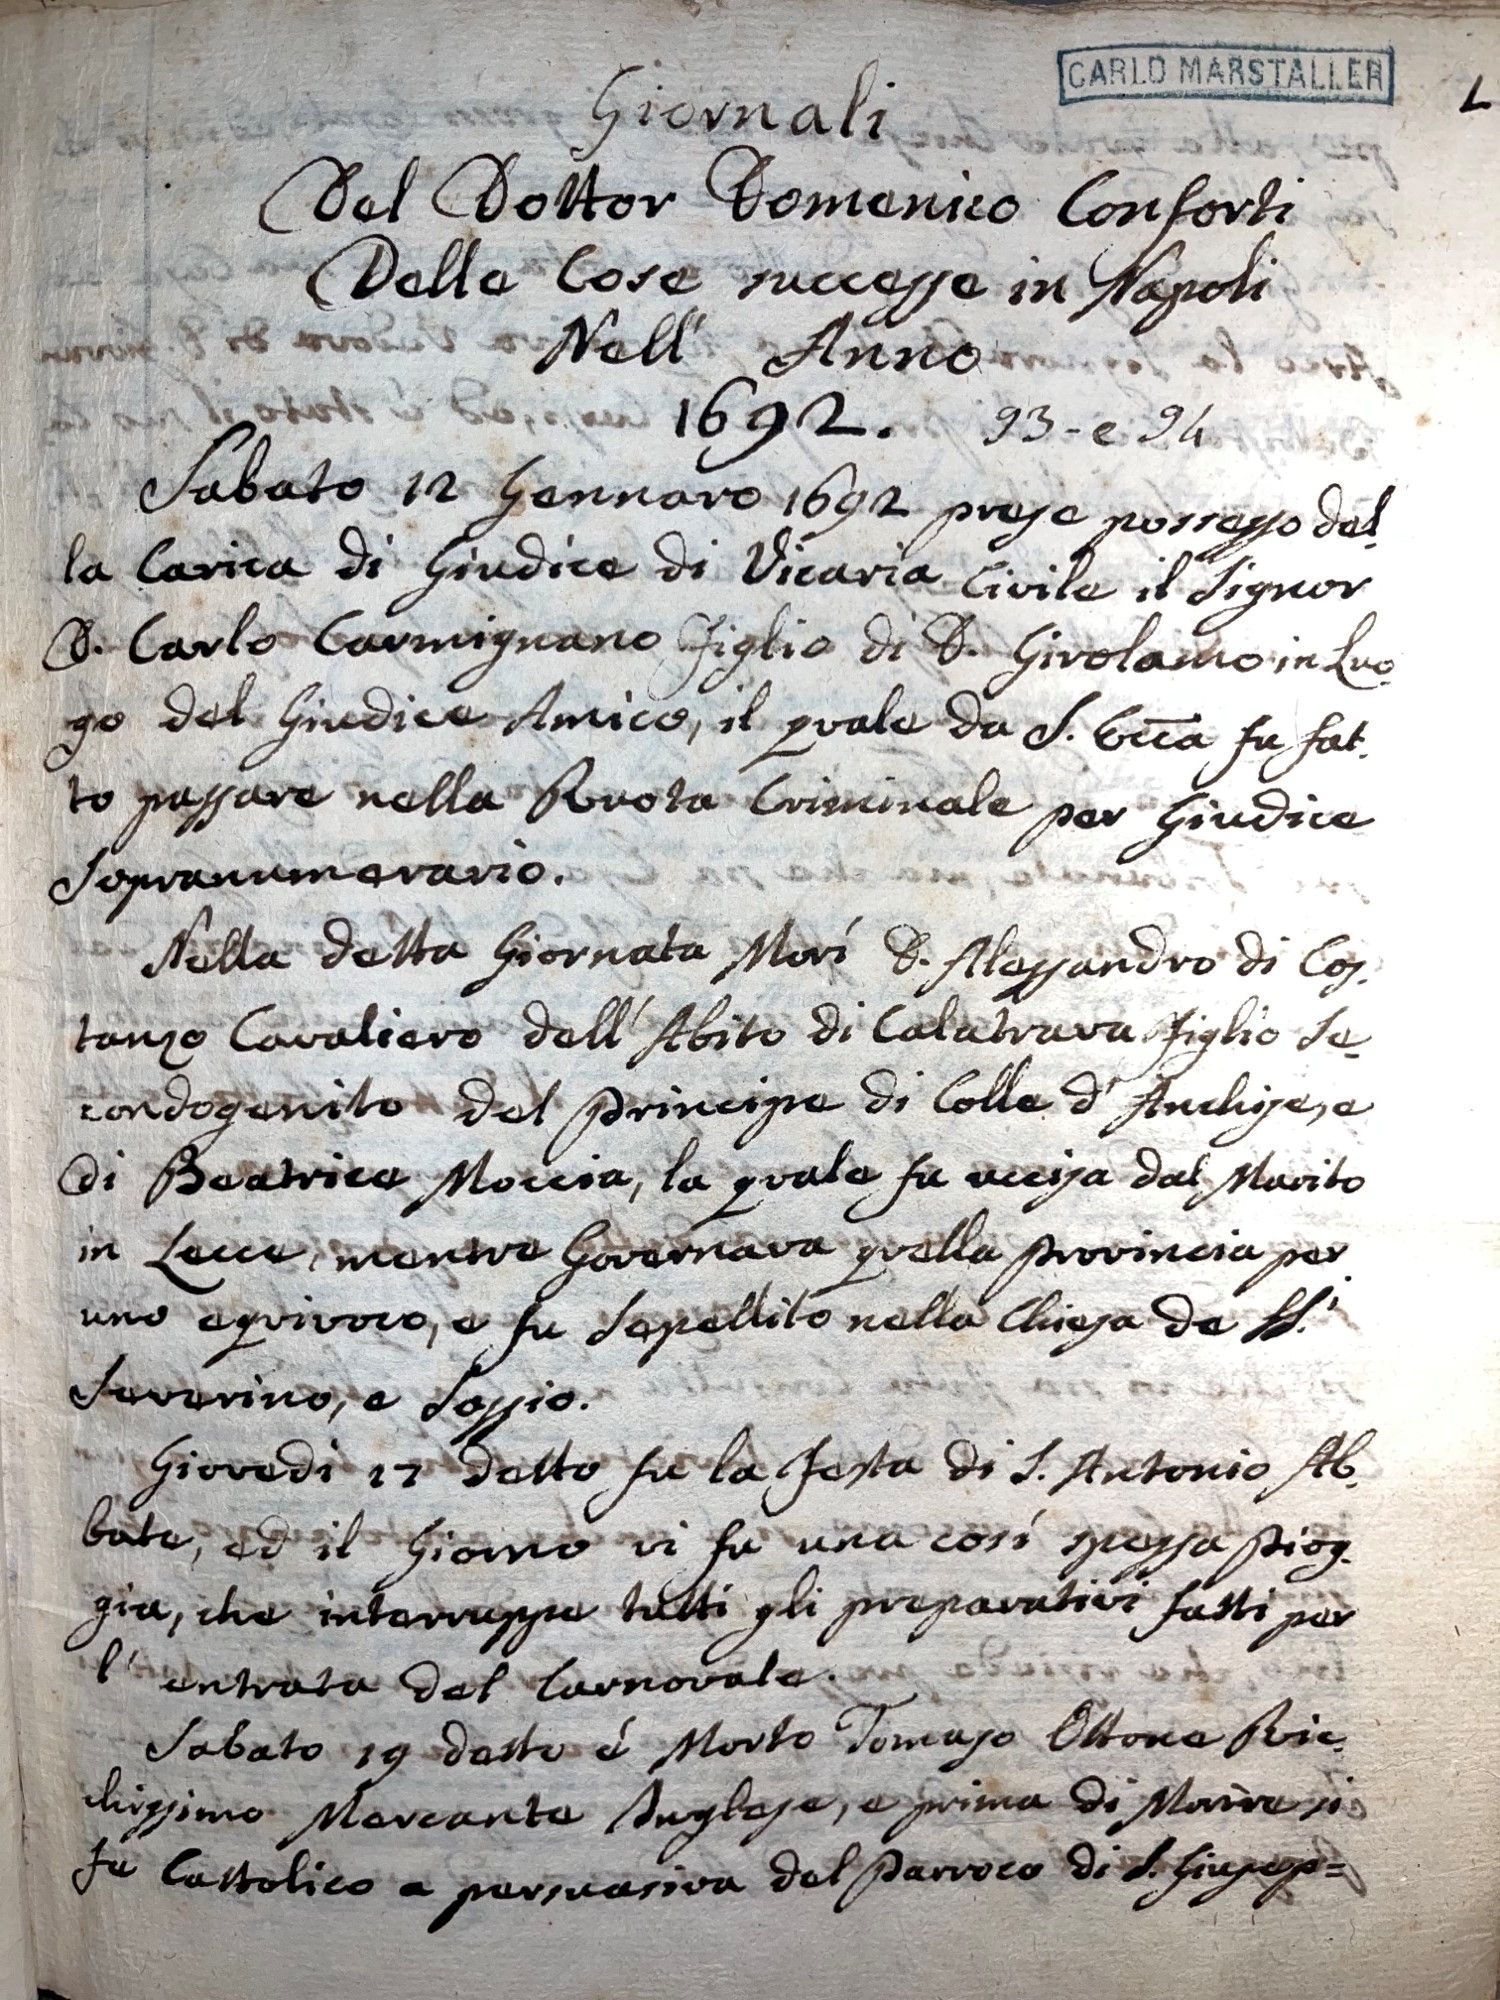 CARLO MARSTALLER
Giornali
Del Dottor Domenico Conforti
Delle Cose successe in Napoli
Nell' Anno
1692. 93-e 94
Sabato 12 Gennaro 1692 prese possesso del-
la Carica di Giudice di Vicaria Civile il Signor
D. Carlo Carmignano Figlio di D. Girolamo in Luo-
go del Giudice Amico, il quale da S. Ecc̄a fu fat-
to passare nella Ruota Criminale per Giudice
Sopranumerario.
Nella detta Giornata Morí D. Alessandro di Cos-
tanzo Cavaliero dell' Abito di Calatrava Figlio Se-
condogenito del Principe di Colle d' Anchise, e
di Beatrice Moccia, la quale fu uccisa dal Marito
in Lecce, mentre Governava quella Provincia per
uno equivoco, e fu Sepellito nella Chiesa de SS.i
Severino, e Sossio.
Giovedi 17 detto fu la Festa di S. Antonio Ab-
bate, ed il Giorno vi fu una cosí spessa Piog-
gia, che interruppe tutti gli preparativi fatti per
l' entrata del Carnovale.
Sabato 19 detto é Morto Tomaso Ottone Ric-
chissimo Mercante Inglese, e prima di Morire si
fe Cattolico a persuasiva del Parroco di S. Giusepp=